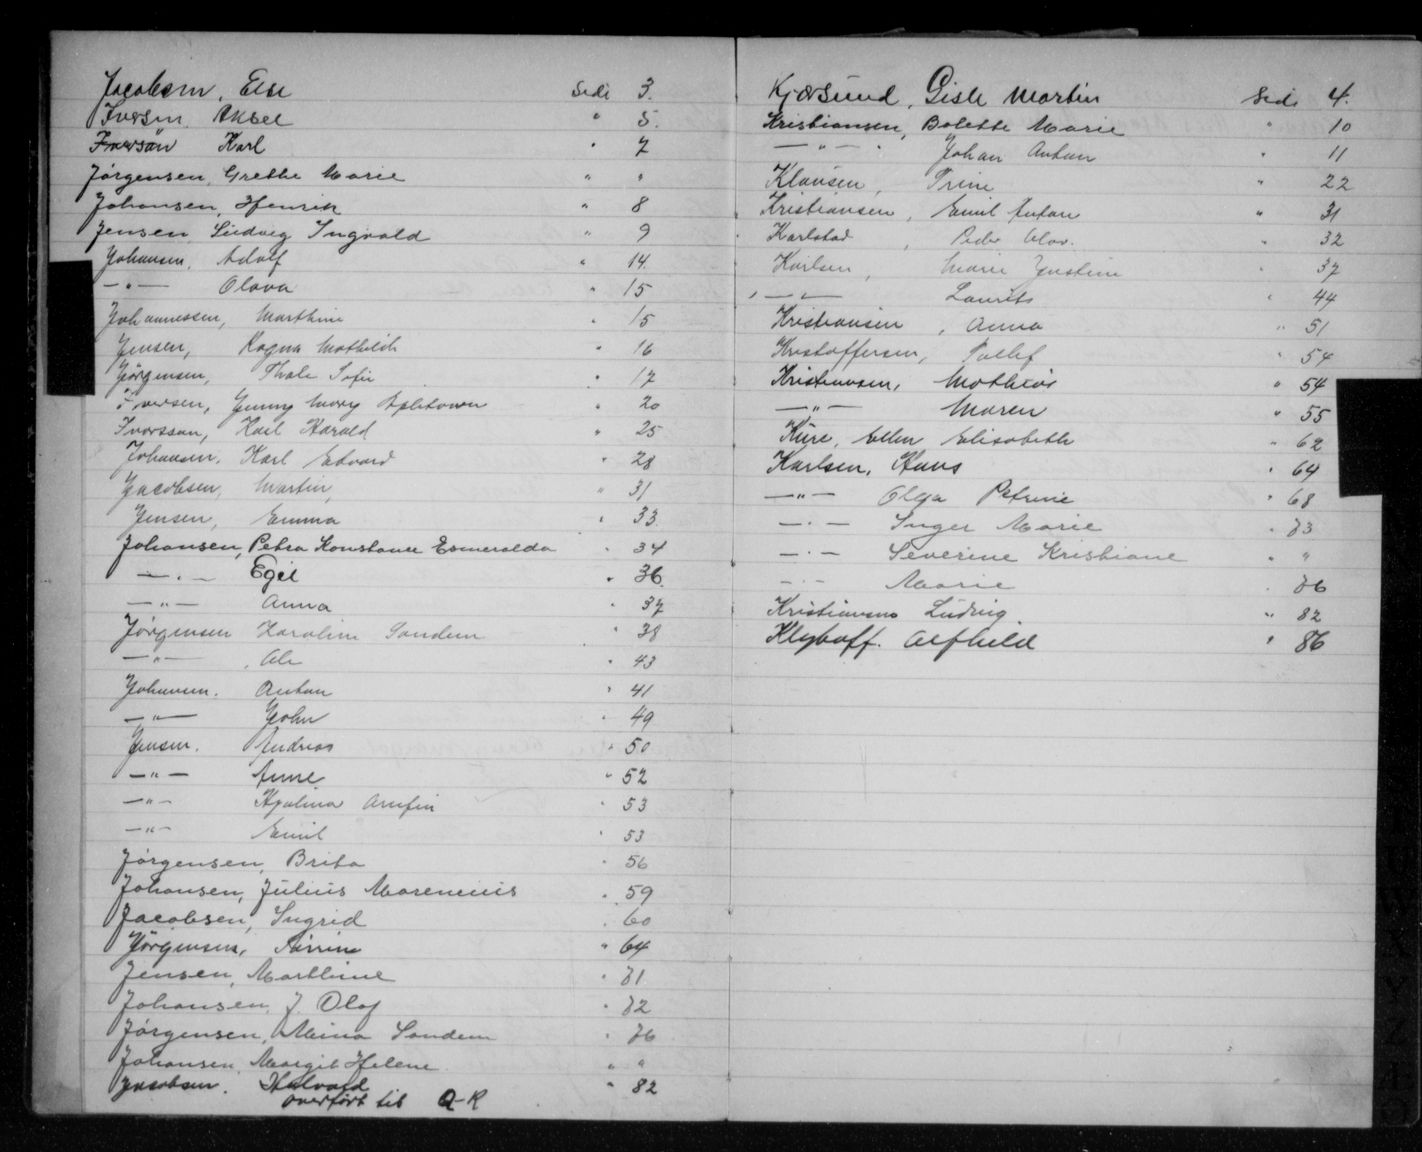 Jacobsen, Else Side 3.
Iversen, Aksel " 5.
Iversøn Karl " 7
Jørgensen, Grethe Marie " "
Johansen, Henrik " 8
Jensen, Ludvig Ingvald " 9
Johansen, Adolf " 14.
—"— Olava " 15
Johannessen, Marthine " 15
Jensen, Ragna Mathilde " 16
Jørgensen, Thale Sofie " 17
Iversen, Jenny Mary " 20
Ivarsson, Karl Harald " 25
Johansen, Karl Edvard " 28
Jacobsen, Martin " 31
Jensen, Emma " 33
Johansen, Petra Konstance Esmeralda " 34
—"— Egil " 36.
—"— Anna " 37
Jørgensen Karoline Sandem " 38
—"— , Ole " 43
Johansen. Anton " 41
—"— John " 49
Jensen. Andreas " 50
—"— Anne " 52
—"— Hjalmar Arnfin " 53
—"— Emil " 53
Jørgensen, Brita " 56
Johansen, Julius Marenius " 59
Jacobsen, Ingrid " 60
Jørgensen, " 64
Jensen, Marthine " 71
Johansen, J. Olaf " 72
Jørgensen, Mina Sandem " 76
Johansen, Margit Helene " "
Jacobsen. Halvard " 82
overført til Q-R
Kjærsund, Gisle Martin Side 4.
Kristiansen, Bolette Marie " 10
—"— Johan Anton " 11
Klausen, Trine " 22
Kristiansen, Emil Anton " 31
Karlstad, Peder Olav. " 32
Karlsen, Marie Justine " 37
—"— Laurits " 44
Kristiansen, Anna " 51
Kristoffersen, Tollef " 54
Kristiansen, Mathias " 54
—"— Maren " 55
Kure, Ellen Elisabeth " 62
Karlsen, Hans " 64
—"— Olga Petrine " 68
—"— Inger Marie " 73
—"— Severine Kristiane " "
—"— Marie " 76
Kristiansen Ludvig " 82
Klyhoff. Alfhild " 86